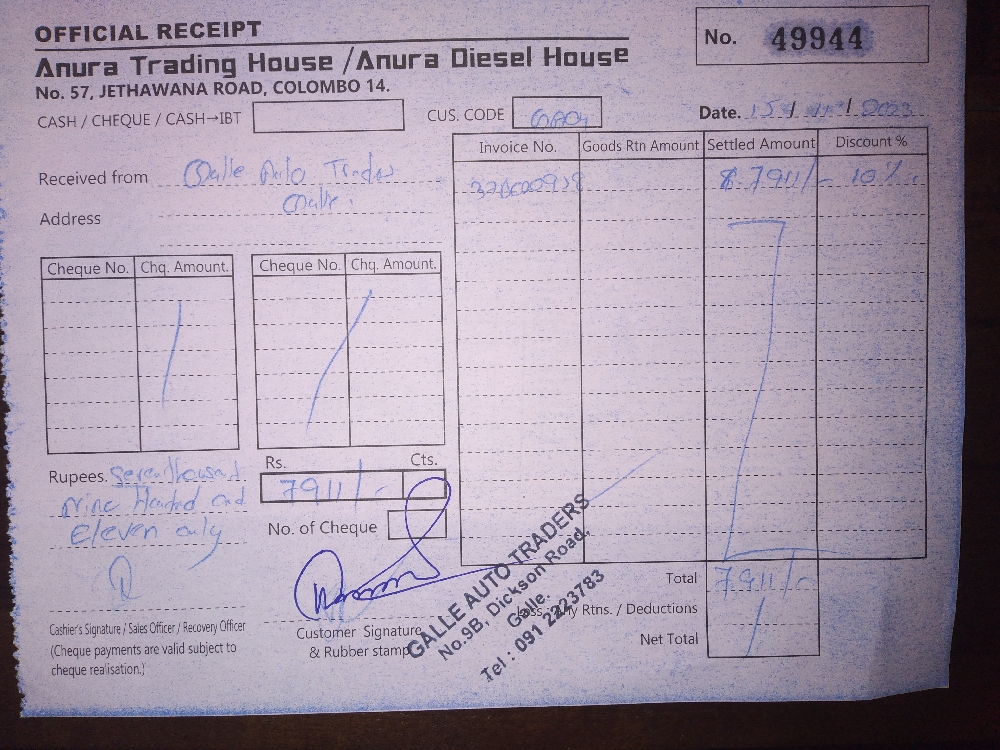 OFFICIAL RECEIPT
No. 49944
Anura Trading House /Anura Diesel House
No. 57, JETHAWANA ROAD, COLOMBO 14.
CASH / CHEQUE / CASH→IBT
CUS. CODE
Date. 15 / / 2023
Invoice No. Goods Rtn Amount Settled Amount Discount %
Received from Galle Auto Traders
Galle.
7911/- 10%.
Address
Cheque No. Chq. Amount. Cheque No. Chq. Amount.
Rupees. Seven thousand
Nine Hundred and
Eleven only
Rs. Cts.
7911/-
No. of Cheque
Total 7911/-
Less: Any Rtns. / Deductions
Net Total
Cashier's Signature / Sales Officer / Recovery Officer
(Cheque payments are valid subject to
cheque realisation.)
Customer Signature
& Rubber stamp
GALLE AUTO TRADERS
No.9B, Dickson Road,
Galle.
Tel : 091 2223783